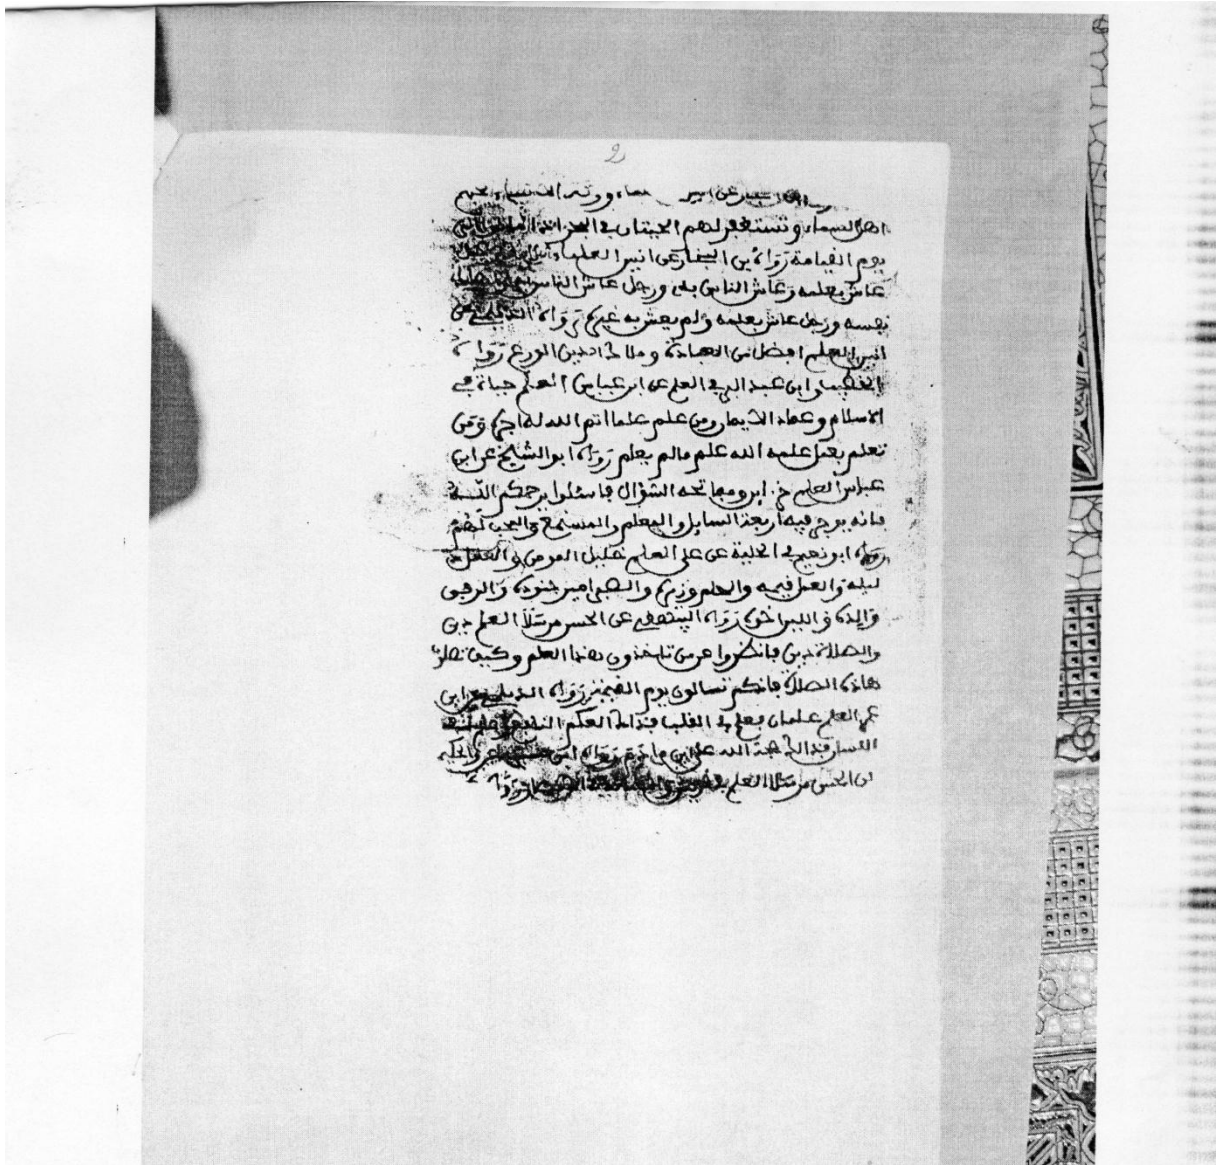 2
ابن النجار عن انس العلماء ورثة الانبياء يحبهم
اهل السماء وتستغفر لهم الحيتان في البحر اذا ماتوا الى
يوم القيامة رواه ابن النجار عن انس العلماء
عاش بعلمه وعاش الناس به ورجل عاش الناس به
نفسه ورجل عاش بعلمه ولم يعش به غيره رواه الديلمي عن
انس العلم افضل من العبادة وملاك الدين الورع رواه
الخطيب وابن عبد البر في العلم عن ابن عباس العلم حياة
الاسلام وعماد الايمان ومن علم علما اتم الله له اجره ومن
تعلم بعمل علمه الله علم مالم يعلم رواه ابو الشيخ عن ابن
عباس العلم خزاين ومفاتحه السؤال فاسئلوا يرحمكم الله
فانه يوجر فيه اربعة السايل والمعلم والمستمع والمحب لهم
رواه ابو نعيم في الحلية عن علي العلم خليل المومن والعقل
ليله والعمل قيمه والحلم وزيره والصبر امير جنوده والرفق
والده واللين اخوه رواه البيهقي عن الحسن مرسلا العلم دين
والصلاة دين فانظروا عن من تاخذون هذا العلم وكيف تصلون
هاذه الصلاة فانكم تسالون يوم القيمة رواه الديلمي عن ابن
عمر العلم علمان فعلم في القلب فذلك العلم النافع وعلم على
اللسان فذلك حجة الله على ابن ءادم رواه ابن والحكيم
عن الحسن مرسلا العلم في قريش رواه